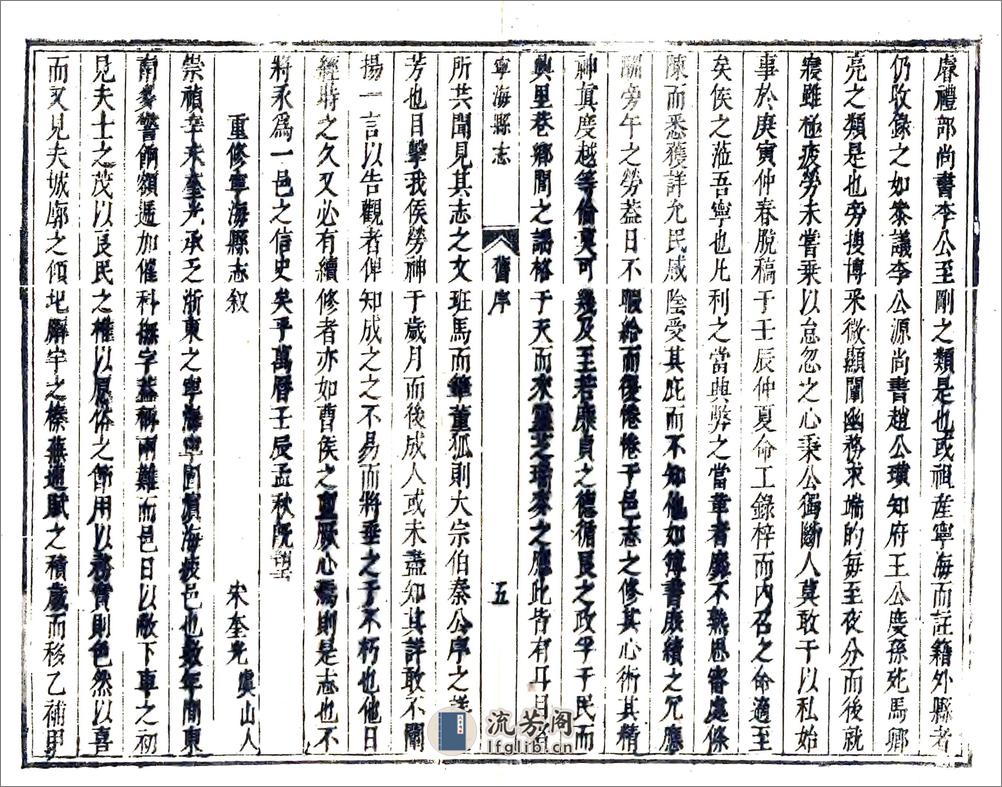 膚禮部尚書李公至剛之類是也或祖產寧海而註籍外縣者
仍收錄之如叅議李公源尚書趙公璜知府王公度孫死馬卿
亮之類是也旁搜博采微顯闡幽務求端的每至夜分而後就
寢雖極疲勞未嘗乗以怠忽之心秉公獨斷人莫敢干以私始
事於庚寅仲春脫稿于壬辰仲夏命工錄梓而內召之命適至
矣侯之蒞吾寧也凡利之當興弊之當革者靡不熟思審處條
陳而悉獲詳允民咸陰受其庇而不知他如簿書䏍績之冗應
酬旁午之勞葢日不暇給而復惓惓于邑志之修其心術其精
神眞度越等倫莫可幾及至若廉貞之德循良之政孚于民而
興里巷鄉閭之謡格于天而來靈芝瑞麥之應此皆有耳目者
寧海縣志
舊序
五
所共聞見其志之文班馬而筆董狐則大宗伯秦公序之詳
芳也目擊我侯勞神于歲月而後成人或未盡知其詳敢不闡
揚一言以告觀者俾知成之之不易而將垂之于不朽也他日
經時之久又必有續修者亦如曹侯之厥心焉則是志也不
將永爲一邑之信史矣乎萬曆壬辰孟秋旣望
重修寧海縣志叙
宋奎光 虞山人
崇禎辛未奎光承乏浙東之寧海寧固濵海疲邑也數年間東
南多警餉額遞加催科撫字葢稱兩難而邑日以敝下車之初
見夫士之茂以良民之以愿俗之節用以務實則色然以喜
而又見夫城廓之傾圯廨宇之榛蕪逋賦之積歲而移乙補甲
流芳阁
lfglib.cn